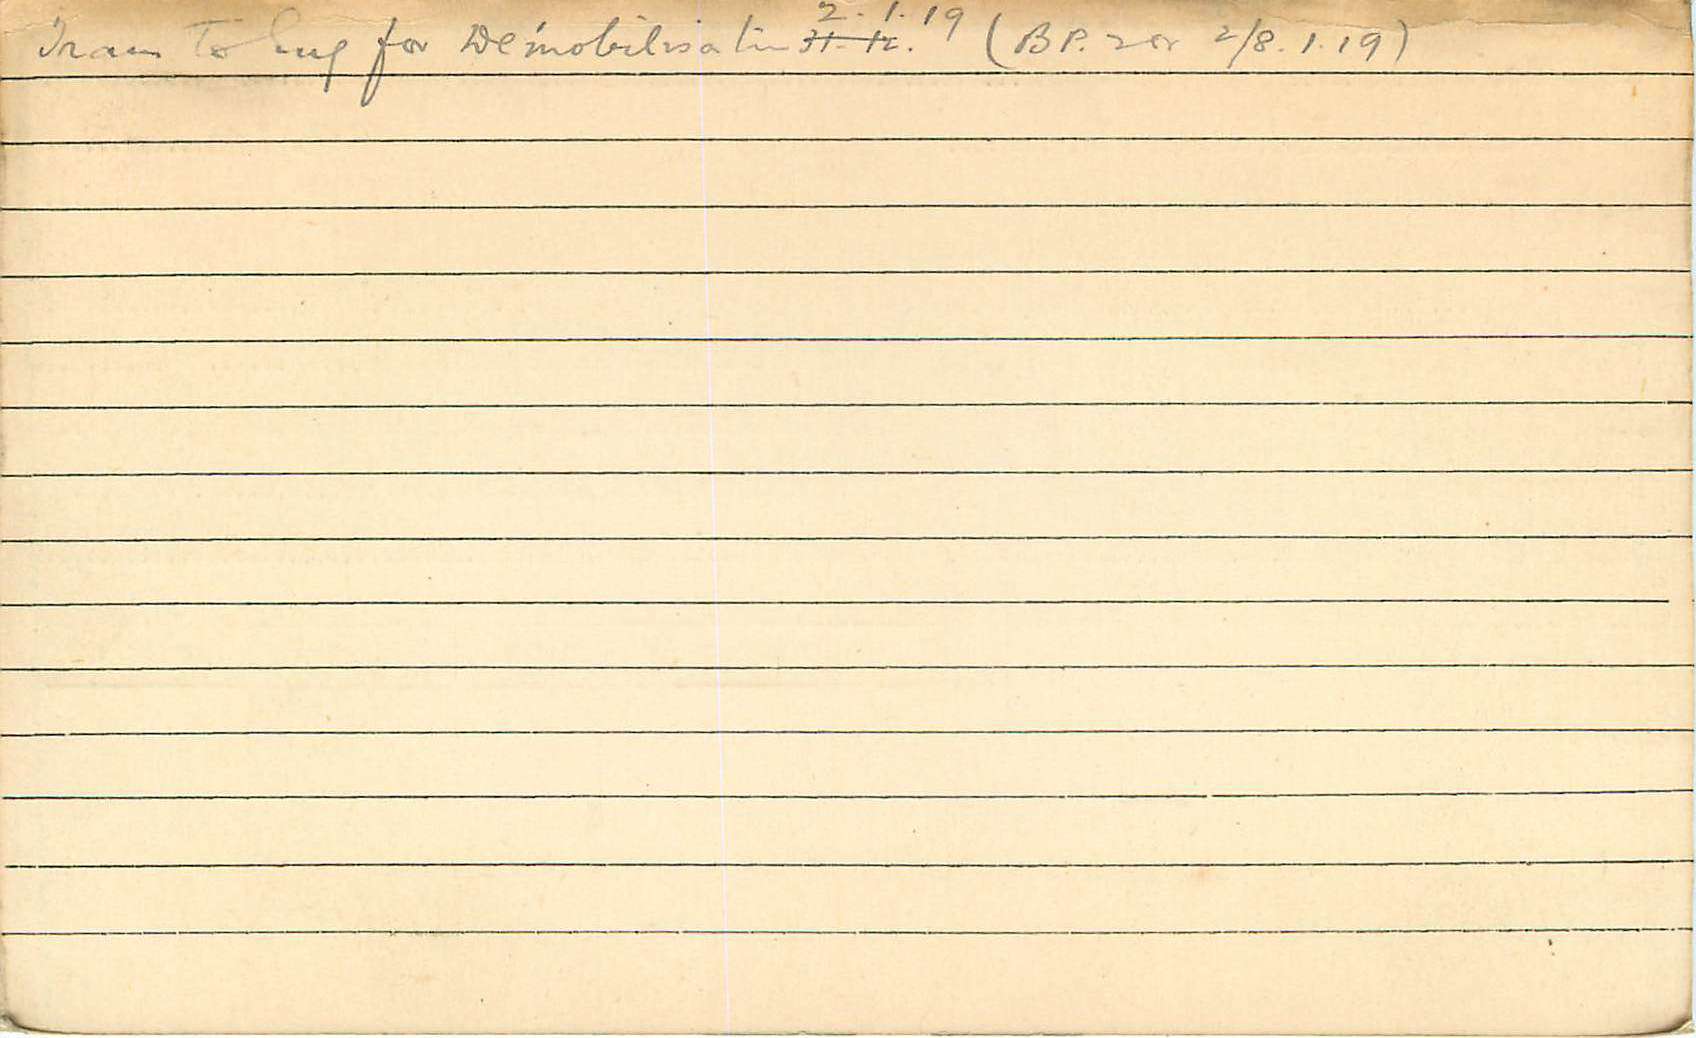 Trans To Eng for Demobilisation 31. 12. 2. 1. 19 (B P. 2 or 2/8. 1. 19)